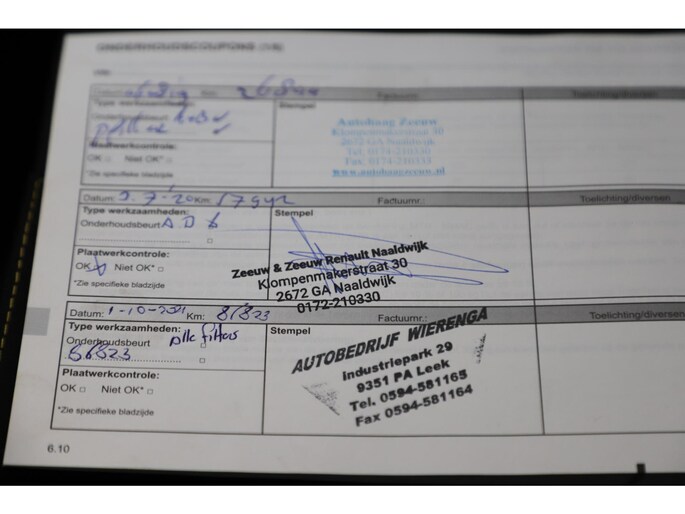 ONDERHOUDSCOUPONS
Km:
Factuurnr.:
Toelichting/diversen
Type werkzaamheden:
Stempel
Onderhoudsbeurt
Autohaag Zeeuw
Klompenmakerstraat 30
2672 GA Naaldwijk
Tel. 0174-210330
Fax. 0174-210331
www.autohaagzeeuw.nl
Plaatwerkcontrole:
OK Niet OK*
*Zie specifieke bladzijde
Datum: Km:
Factuurnr.:
Toelichting/diversen
Type werkzaamheden:
Stempel
Onderhoudsbeurt
Zeeuw & Zeeuw Renault Naaldwijk
Klompenmakerstraat 30
2672 GA Naaldwijk
0172-210330
Plaatwerkcontrole:
OK Niet OK*
*Zie specifieke bladzijde
Datum: Km:
Factuurnr.:
Toelichting/diversen
Type werkzaamheden:
Stempel
Onderhoudsbeurt alle filters
AUTOBEDRIJF WIERENGA
Industriepark 29
9351 PA Leek
Tel. 0594-581165
Fax 0594-581164
Plaatwerkcontrole:
OK Niet OK*
*Zie specifieke bladzijde
6.10